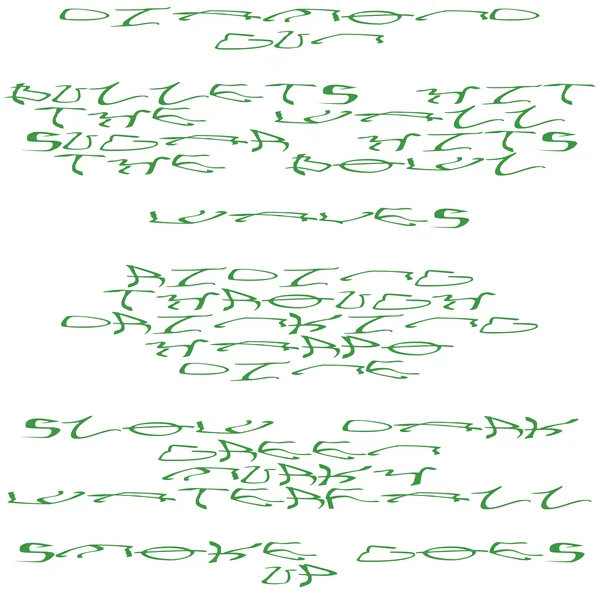 DIAMOND
GUN
BULLETS HIT
THE WALL
SUGAR HITS
THE BOWL
WAVES
RIDING
THROUGH
DRINKING
DINE
SLOW DARK
GREEN
MURKY
WATERFALL
SMOKE GOES
UP